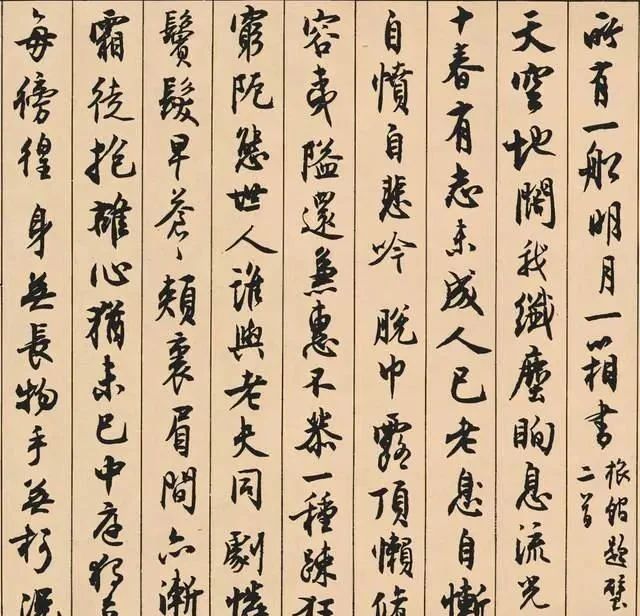 所有一船明月一箱書
旅館題壁
二首
天空地闊我纖塵眴息流光
十春有志未成人已老息自慚
自憤自悲吟 脫巾露頂懶脩
容夷隘還兼惠不恭一種疎狂
窮阨態世人誰與老夫同 劇憐
鬢髮早蒼〻頰裏眉間亦漸
霜徒抱雄心猶未已中庭獨
每徬徨 身無長物手無柯